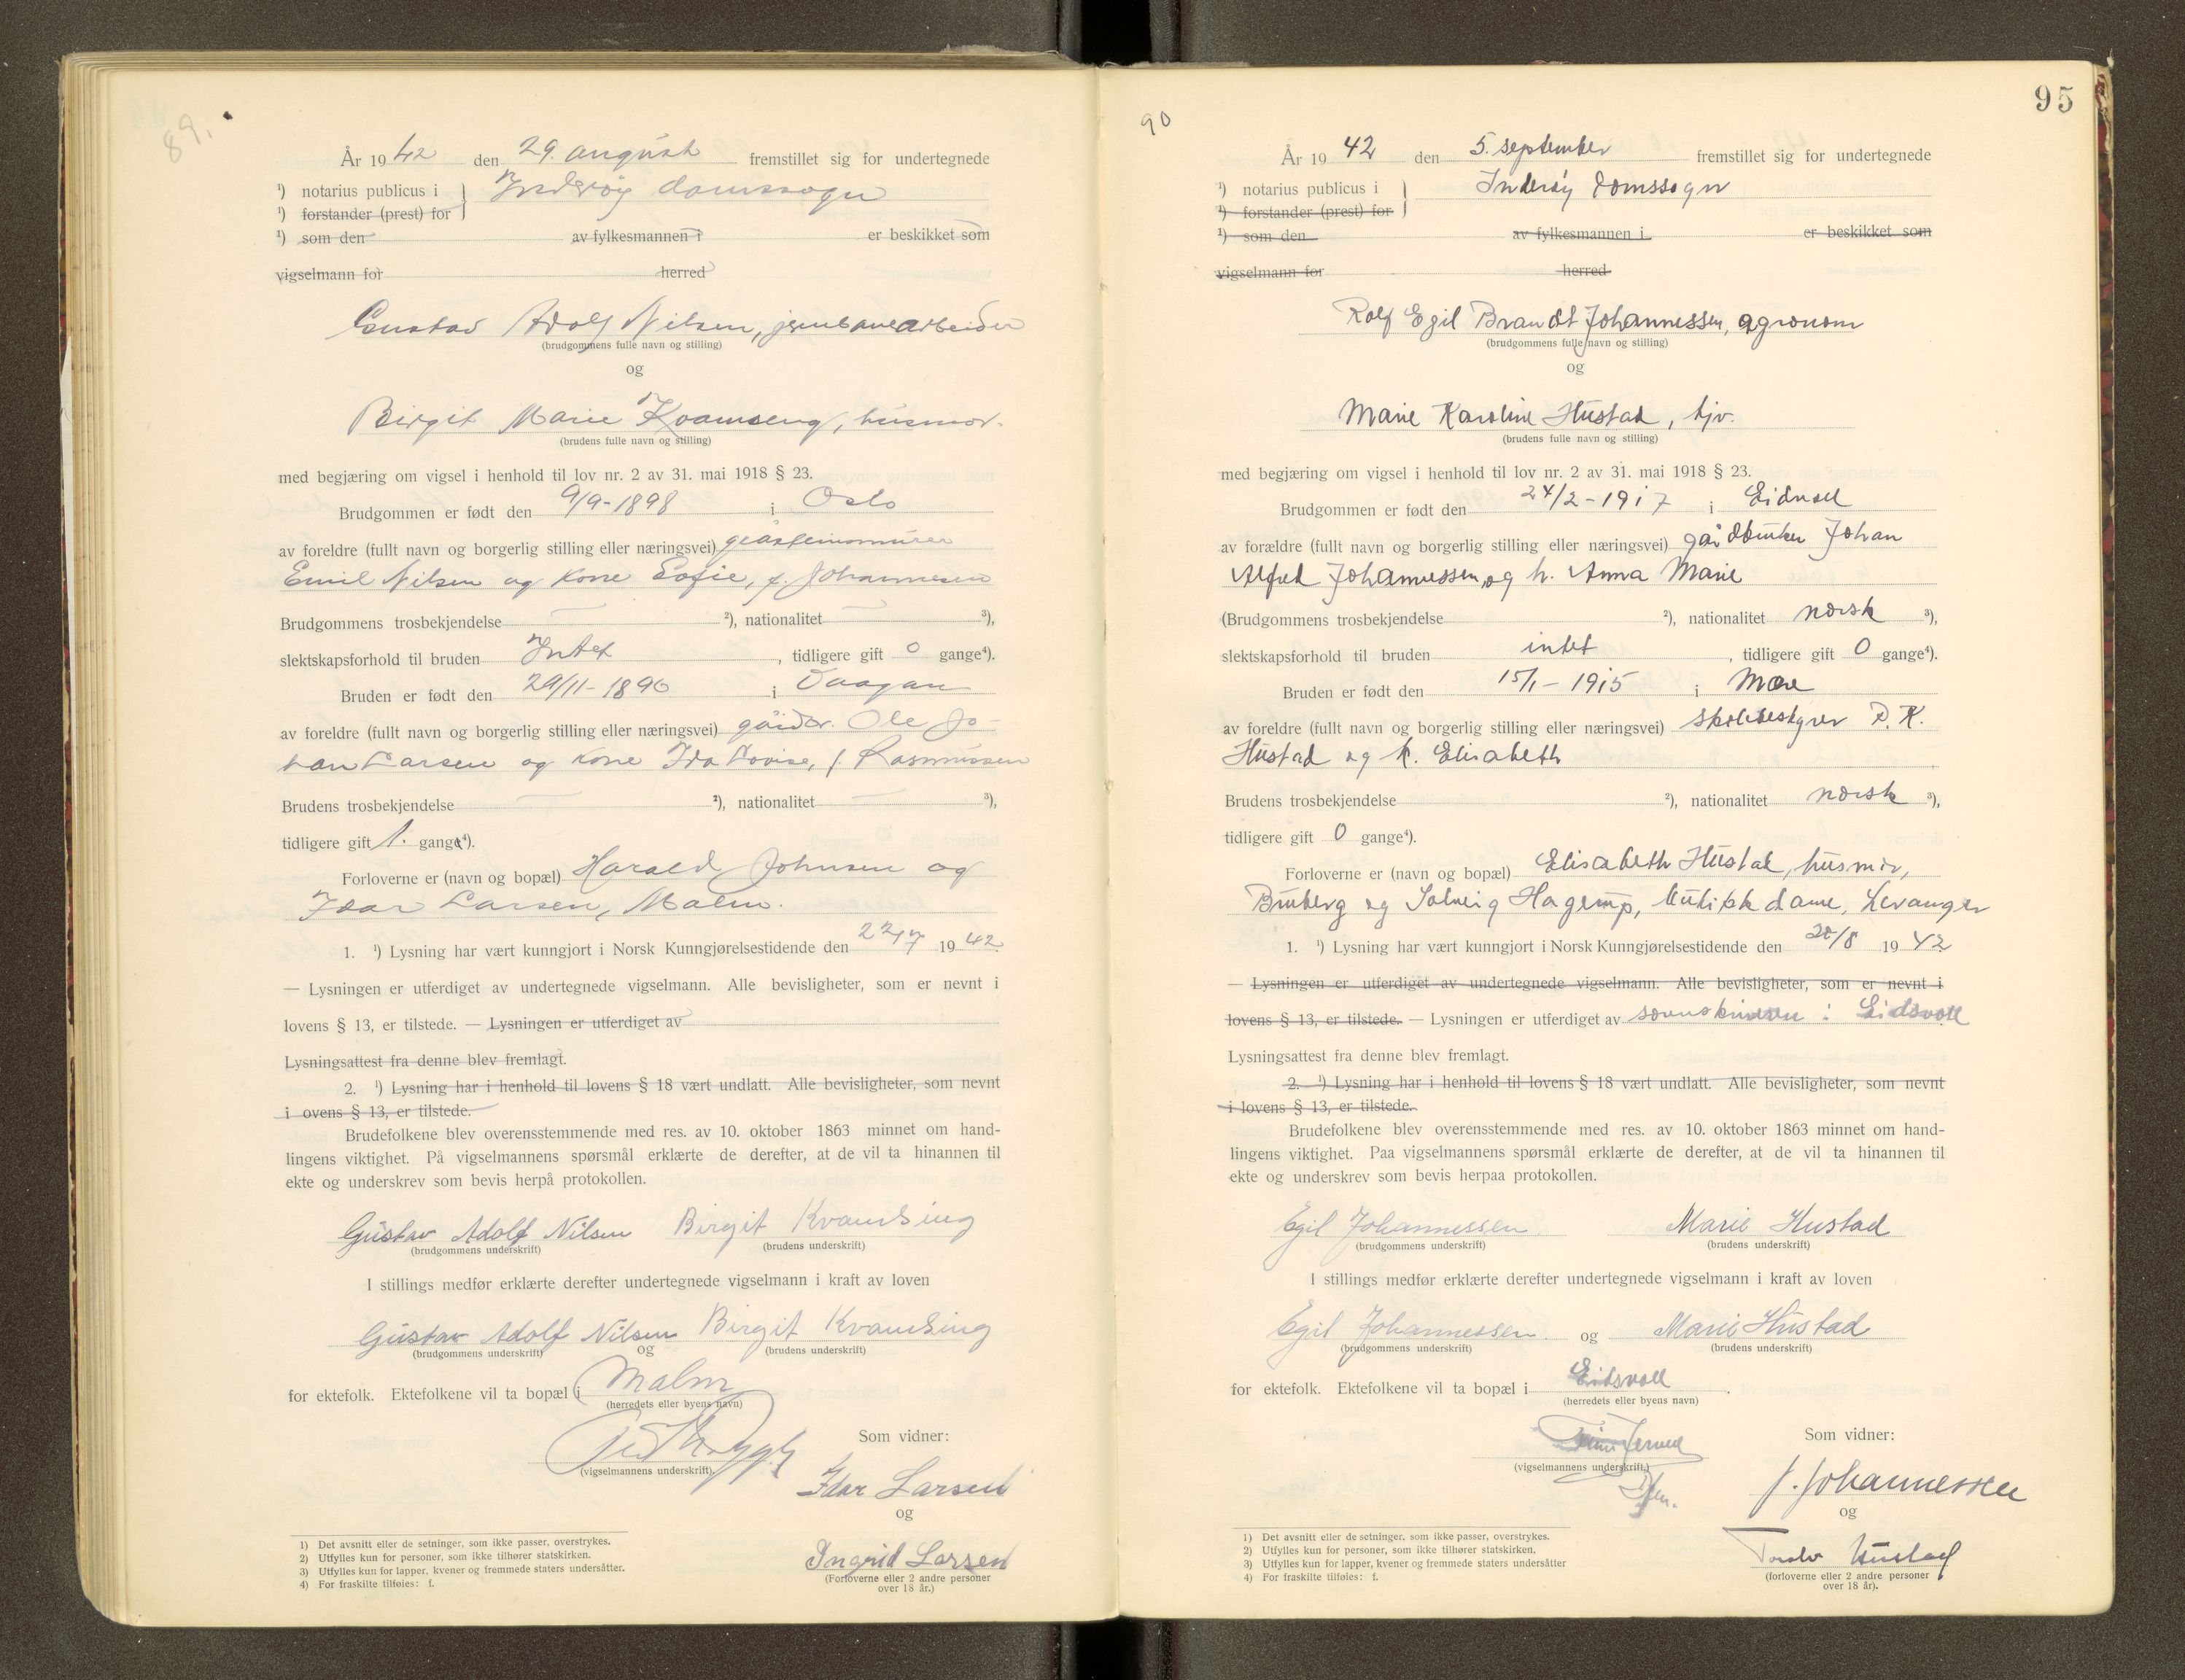 89.
År 1942 den 29. august fremstillet sig for undertegnede
¹) notarius publicus i } Inderøy domssogn
¹) forstander (prest) for
¹) som den av fylkesmannen i er beskikket som
vigselmann for herred
Gustav Adolf Nilsen, jernbanearbeider
(brudgommens fulle navn og stilling)
og
Birgit Marie Kvamseng, husmor.
(brudens fulle navn og stilling)
med begjæring om vigsel i henhold til lov nr. 2 av 31. mai 1918 § 23.
Brudgommen er født den 9/9-1898 i Oslo
av foreldre (fullt navn og borgerlig stilling eller næringsvei)
Emil Nilsen og kone Sofie, f. Johannesen
Brudgommens trosbekjendelse — ²), nationalitet — ³),
slektskapsforhold til bruden Intet, tidligere gift 0 gange⁴).
Bruden er født den 29/11-1890 i Vaagan
av foreldre (fullt navn og borgerlig stilling eller næringsvei) gårdbr. Ole Jo-
han Larsen og kone Ida Lovise, f. Rasmussen
Brudens trosbekjendelse — ²), nationalitet — ³),
tidligere gift 1. gang⁴).
Forloverne er (navn og bopæl) Harald Johnsen og
Idar Larsen, Malm.
1. ¹) Lysning har vært kunngjort i Norsk Kunngjørelsestidende den 22/7 1942.
— Lysningen er utferdiget av undertegnede vigselmann. Alle bevisligheter, som er nevnt i
lovens § 13, er tilstede. — Lysningen er utferdiget av
Lysningsattest fra denne blev fremlagt.
2. ¹) Lysning har i henhold til lovens § 18 vært undlatt. Alle bevisligheter, som nevnt
i ovens § 13, er tilstede.
Brudefolkene blev overensstemmende med res. av 10. oktober 1863 minnet om hand-
lingens viktighet. På vigselmannens spørsmål erklærte de derefter, at de vil ta hinannen til
ekte og underskrev som bevis herpå protokollen.
Gustav Adolf Nilsen Birgit Kvamseng
(brudgommens underskrift) (brudens underskrift)
I stillings medfør erklærte derefter undertegnede vigselmann i kraft av loven
Gustav Adolf Nilsen Birgit Kvamseng
(brudgommens underskrift) og (brudens underskrift)
for ektefolk. Ektefolkene vil ta bopæl i Malm
(herredets eller byens navn)
Som vidner:
(vigselmannens underskrift)
Idar Larsen
og
Ingrid Larsen
(Forloverne eller 2 andre personer
over 18 år.)
1) Det avsnitt eller de setninger, som ikke passer, overstrykes.
2) Utfylles kun for personer, som ikke tilhører statskirken.
3) Utfylles kun for lapper, kvener og fremmede staters undersåtter.
4) For fraskilte tilføies: f.
95
90
År 1942 den 5. september fremstillet sig for undertegnede
¹) notarius publicus i } Inderøy domssogn
¹) forstander (prest) for
¹) som den av fylkesmannen i er beskikket som
vigselmann for herred
Rolf Egil Brandt Johannessen, agronom
(brudgommens fulle navn og stilling)
og
Marie Karoline Hustad, tjv.
(brudens fulle navn og stilling)
med begjæring om vigsel i henhold til lov nr. 2 av 31. mai 1918 § 23.
Brudgommen er født den 24/2-1917 i Eidsvoll
av forældre (fullt navn og borgerlig stilling eller næringsvei) gårdbruker Johan
Alfred Johannessen, og h. Anna Marie
(Brudgommens trosbekjendelse ²), nationalitet norsk ³),
slektskapsforhold til bruden intet, tidligere gift 0 gange⁴).
Bruden er født den 15/1-1915 i Mære
av foreldre (fullt navn og borgerlig stilling eller næringsvei) skolebestyrer P. K.
Hustad og k. Elisabeth
Brudens trosbekjendelse ²), nationalitet norsk ³),
tidligere gift 0 gange⁴).
Forloverne er (navn og bopæl) Elisabeth Hustad, husmor,
og Solveig Hagerup, butikkdame, Levanger
1. ¹) Lysning har vært kunngjort i Norsk Kunngjørelsestidende den 28/8 1942
— Lysningen er utferdiget av undertegnede vigselmann. Alle bevisligheter, som er nevnt i
lovens § 13, er tilstede. — Lysningen er utferdiget av sorenskriveren i Eidsvoll
Lysningsattest fra denne blev fremlagt.
2. ¹) Lysning har i henhold til lovens § 18 vært undlatt. Alle bevisligheter, som nevnt
i lovens § 13, er tilstede.
Brudefolkene blev overensstemmende med res. av 10. oktober 1863 minnet om hand-
lingens viktighet. Paa vigselmannens spørsmål erklærte de derefter, at de vil ta hinannen til
ekte og underskrev som bevis herpaa protokollen.
Egil Johannessen Marie Hustad
(brudgommens underskrift) (brudens underskrift)
I stillings medfør erklærte derefter undertegnede vigselmann i kraft av loven
Egil Johannessen. og Marie Hustad
(brudgommens underskrift) (brudens underskrift)
for ektefolk. Ektefolkene vil ta bopæl i Eidsvoll.
(herredets eller byens navn)
Som vidner:
(vigselmannens underskrift)
J. Johannessen
og
Hustad
(forloverne eller 2 andre personer
over 18 år).
1) Det avsnitt eller de setninger, som ikke passer, overstrykes.
2) Utfylles kun for personer, som ikke tilhører statskirken.
3) Utfylles kun for lapper, kvener og fremmede staters undersåtter
4) For fraskilte tilføies: f.